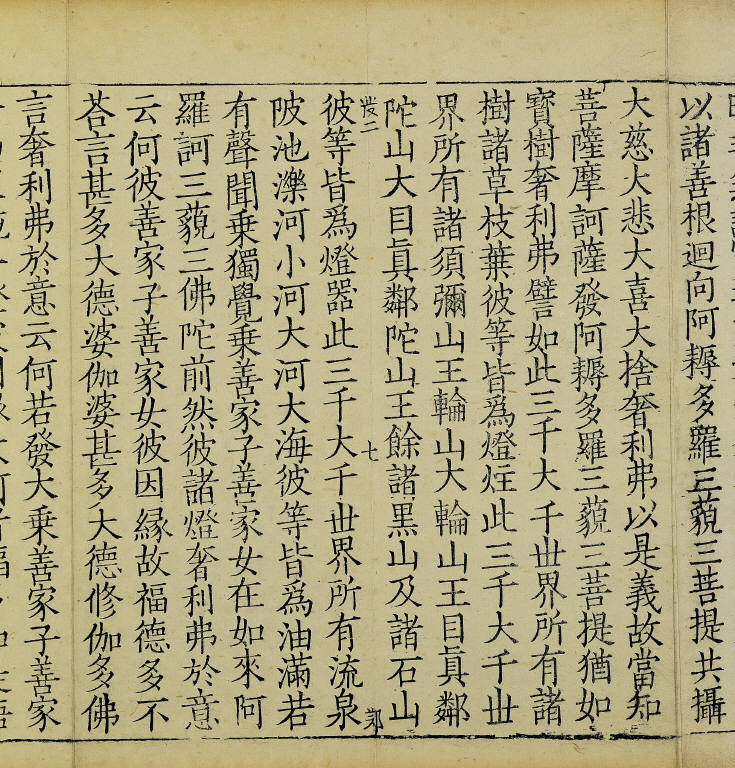 以諸善根迴向阿耨多羅三藐三菩提共攝
大慈大悲大喜大捨奢利弗以是義故當知
菩薩摩訶薩發阿耨多羅三藐三菩提猶如
寶樹奢利弗譬如此三千大千世界所有諸
樹諸草枝葉彼等皆爲燈炷此三千大千世
界所有諸須彌山王輪山大輪山王目真鄰
陀山大目真鄰陀山王餘諸黑山及諸石山
七
彼等皆爲燈器此三千大千世界所有流泉
陂池濼河小河大河大海彼等皆爲油滿若
有聲聞乗獨覺乗善家子善家女在如來阿
羅訶三藐三佛陀前然彼諸燈奢利弗於意
云何彼善家子善家女彼因緣故福德多不
荅言甚多大德婆伽婆甚多大德修伽多佛
言奢利弗於意云何若發大乗善家子善家